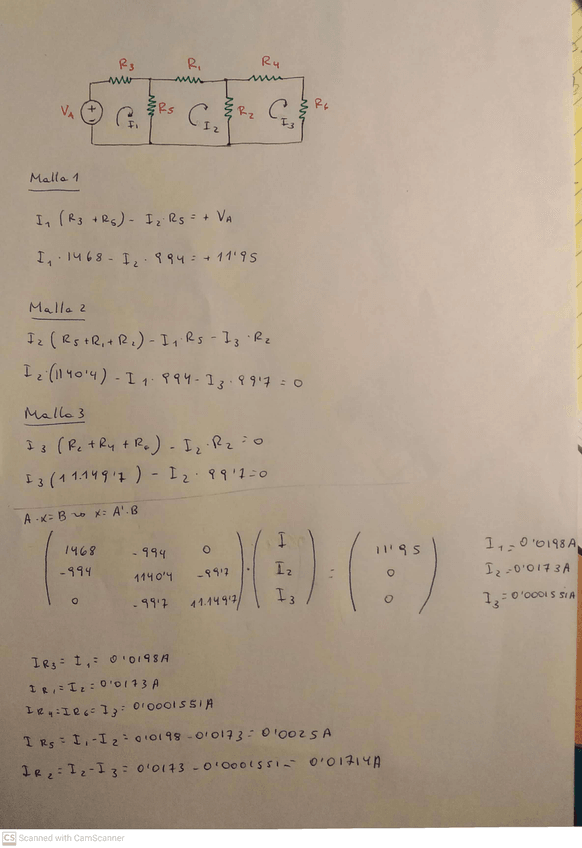 R3 R1 R4
VA I1 R5 I2 R2 I3 R6
Malla 1
I1 (R3 + R5) - I2 · R5 = + VA
I1 · 1468 - I2 · 994 = + 11'95
Malla 2
I2 (R5 + R1 + R2) - I1 · R5 - I3 · R2
I2 · (1140'4) - I1 · 994 - I3 · 99'7 = 0
Malla 3
I3 (R2 + R4 + R6) - I2 · R2 = 0
I3 (11.149'7) - I2 · 99'7 = 0
A · x = B ⇝ x = A' · B
1468 -994 0 I 11'95 I1 = 0'0198A
-994 1140'4 -99'7 · I2 = 0 I2 = 0'0173A
0 -99'7 11.149'7 I3 0 I3 = 0'0001551A
IR3 = I1 = 0'0198A
IR1 = I2 = 0'0173A
IR4 = IR6 = I3 = 0'0001551A
IR5 = I1 - I2 = 0'0198 - 0'0173 = 0'0025A
IR2 = I2 - I3 = 0'0173 - 0'0001551 = 0'01714A
CS Scanned with CamScanner